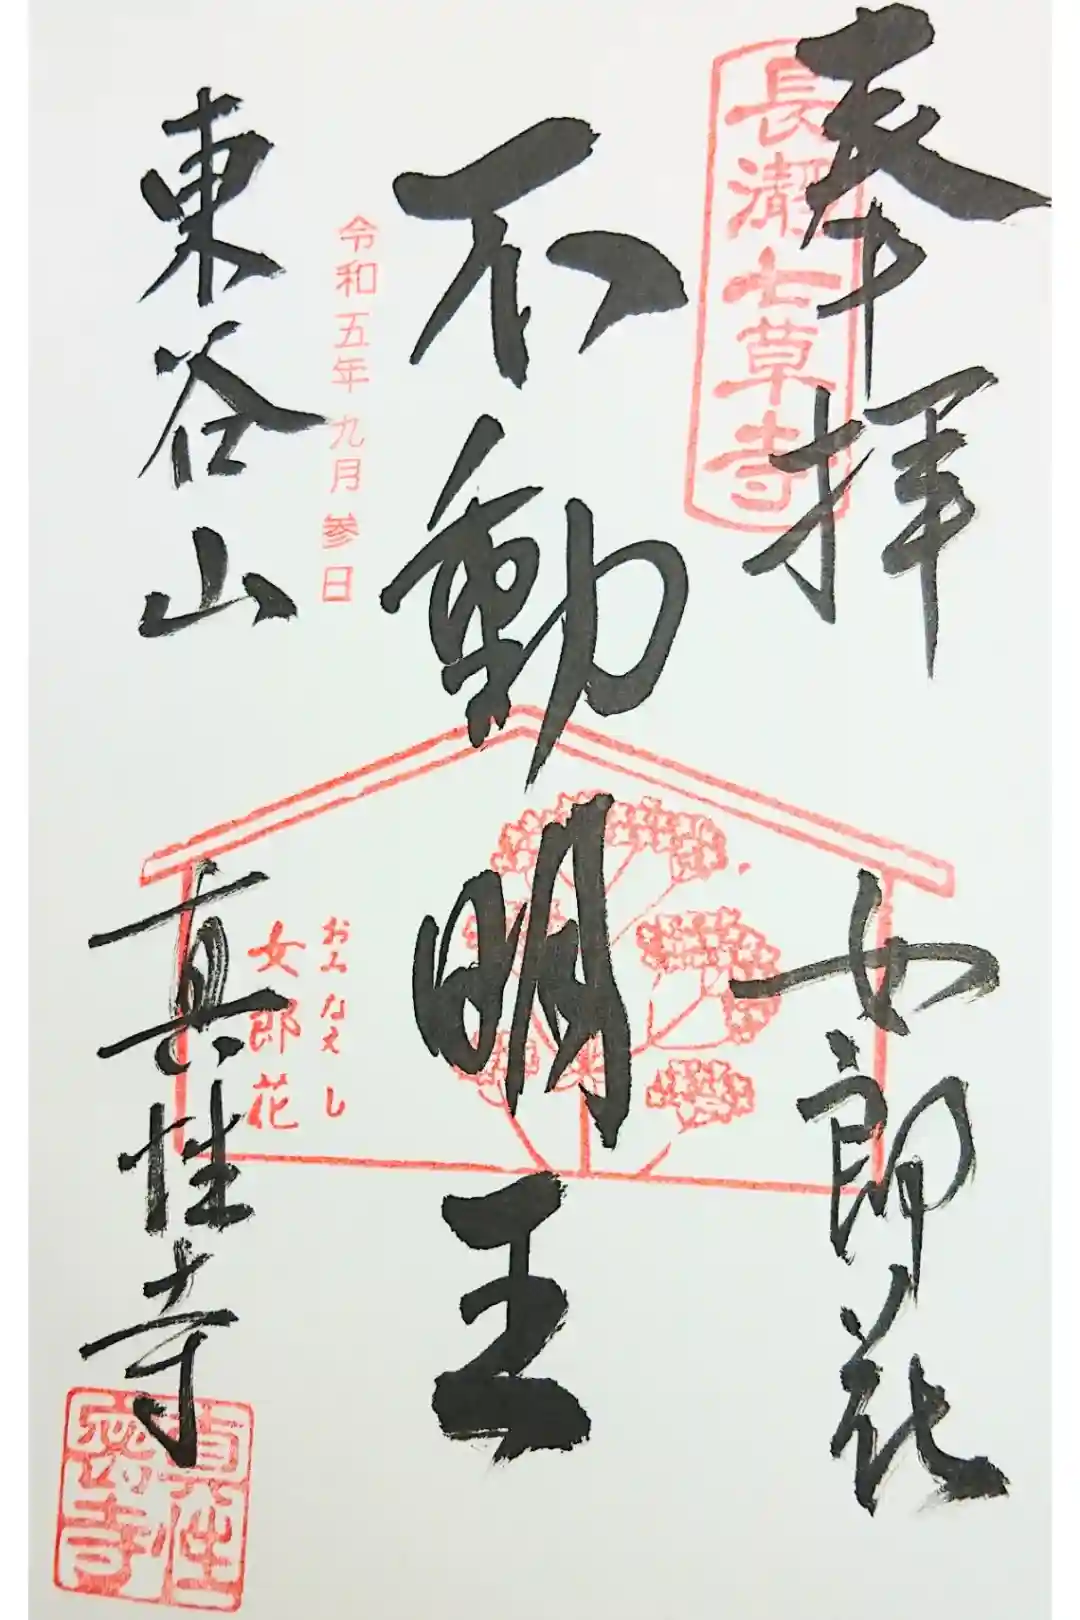 奉拝
長瀞七草寺
女郎花
不動明王
令和五年九月参日
おみなえし
女郎花
東谷山
真性寺
真性
密寺